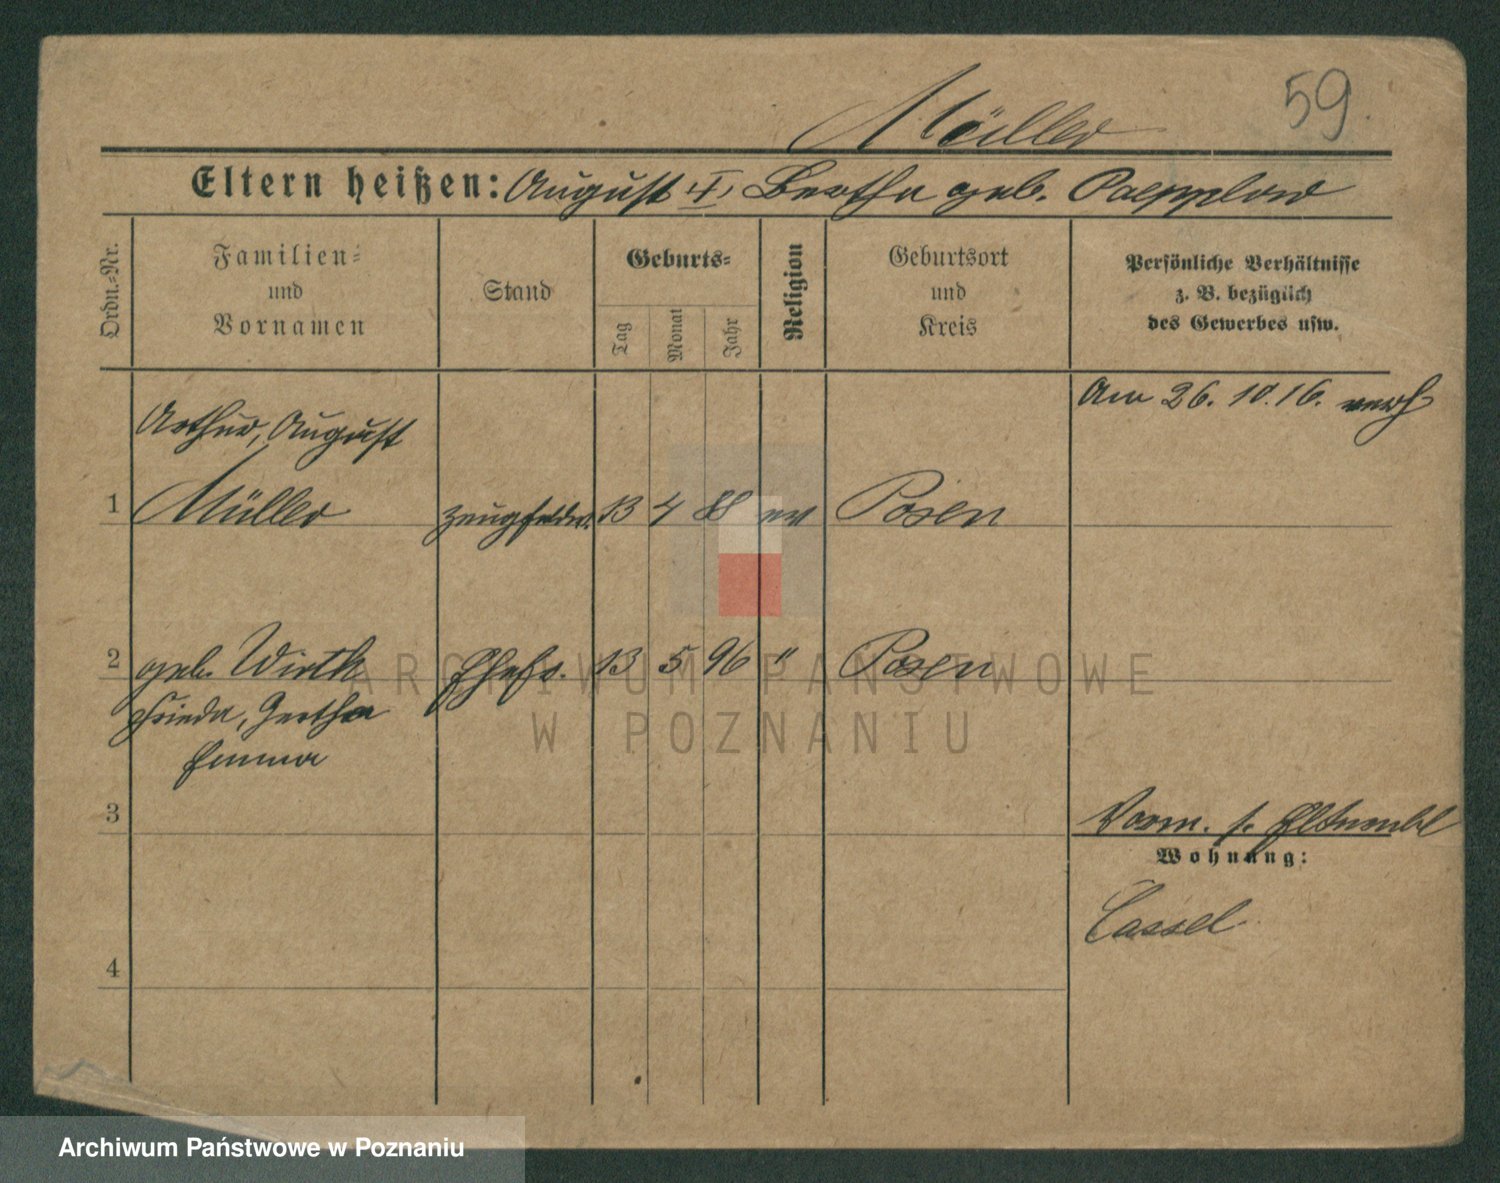 59.
Müller
Eltern heißen: August †, Bertha geb. Paepplow
Ordn.-Nr.
Familien-
und
Vornamen
Stand
Geburts-
Tag
Monat
Jahr
Religion
Geburtsort
und
Kreis
Persönliche Verhältnisse
z. B. bezüglich
des Gewerbes usw.
Am 26. 10. 16. verh
Arthur, August
1 Müller 13 4 88 ev Posen
2 geb. Wirth Ehefr. 13 5 96 " Posen
Frieda, Gertha
Emma
3
Vorm. s.
Wohnung:
Cassel
4
ARCHIWUM PAŃSTWOWE
W POZNANIU
Archiwum Państwowe w Poznaniu